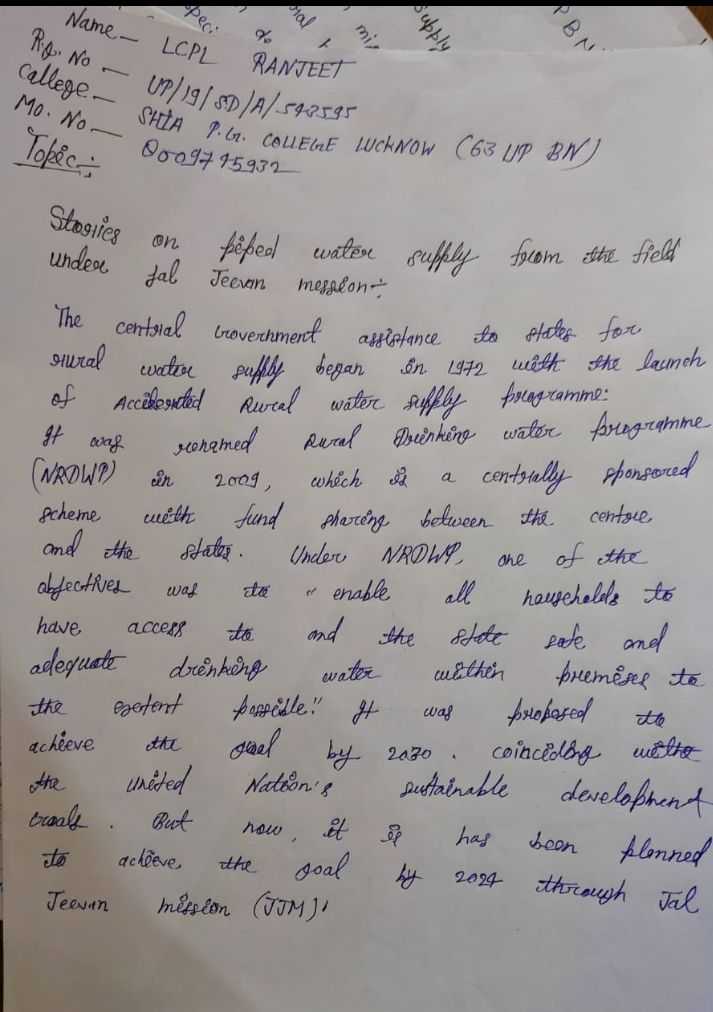 speci. % nal & min supply P B N
Name — LCPL RANJEET
Rg. No — UP/19/SD/A/543595
College — SHIA P.G. COLLEGE LUCKNOW (63 UP BN)
Mo. No —
Topic:-
Stories on piped water supply from the field
under Jal Jeevan mession:-
The central Government assistance to states for
rural water supply began in 1972 with the launch
of Accelerated Rural water supply programme:
It was renamed Rural Drinking water programme
(NRDWP) in 2009, which is a centrally sponsored
scheme with fund sharing between the centre
and the states. Under NRDWP, one of the
objectives was to "enable all households to
have access to and the state safe and
adequate drinking water within premises to
the extent possible". It was proposed to
achieve the goal by 2030. coinciding with
the United Nation's sustainable development
Goals. But now, it is has been planned
to achieve the goal by 2024 through Jal
Jeevan mission (JJM).